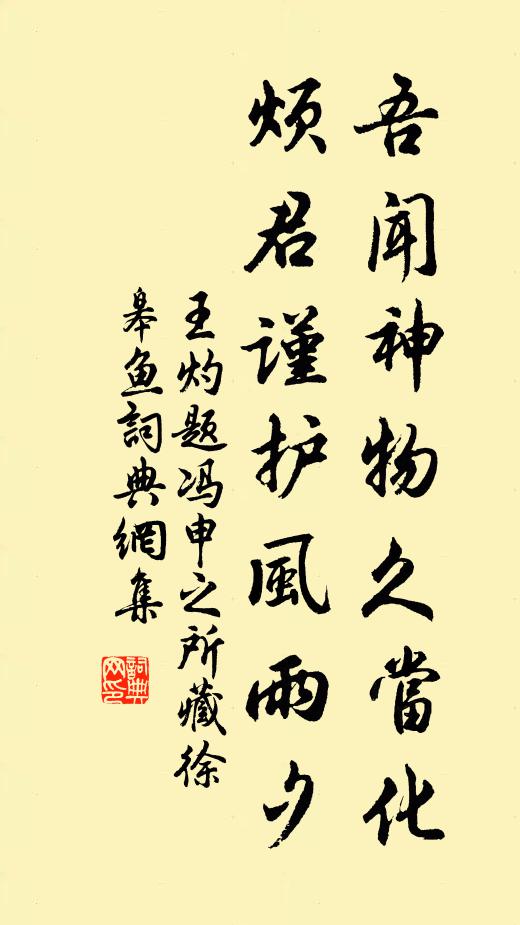 吾闻神物久當化
烦君谨护風雨夕
王灼题冯申之所藏徐
皋鱼詞典網集
詞典网印